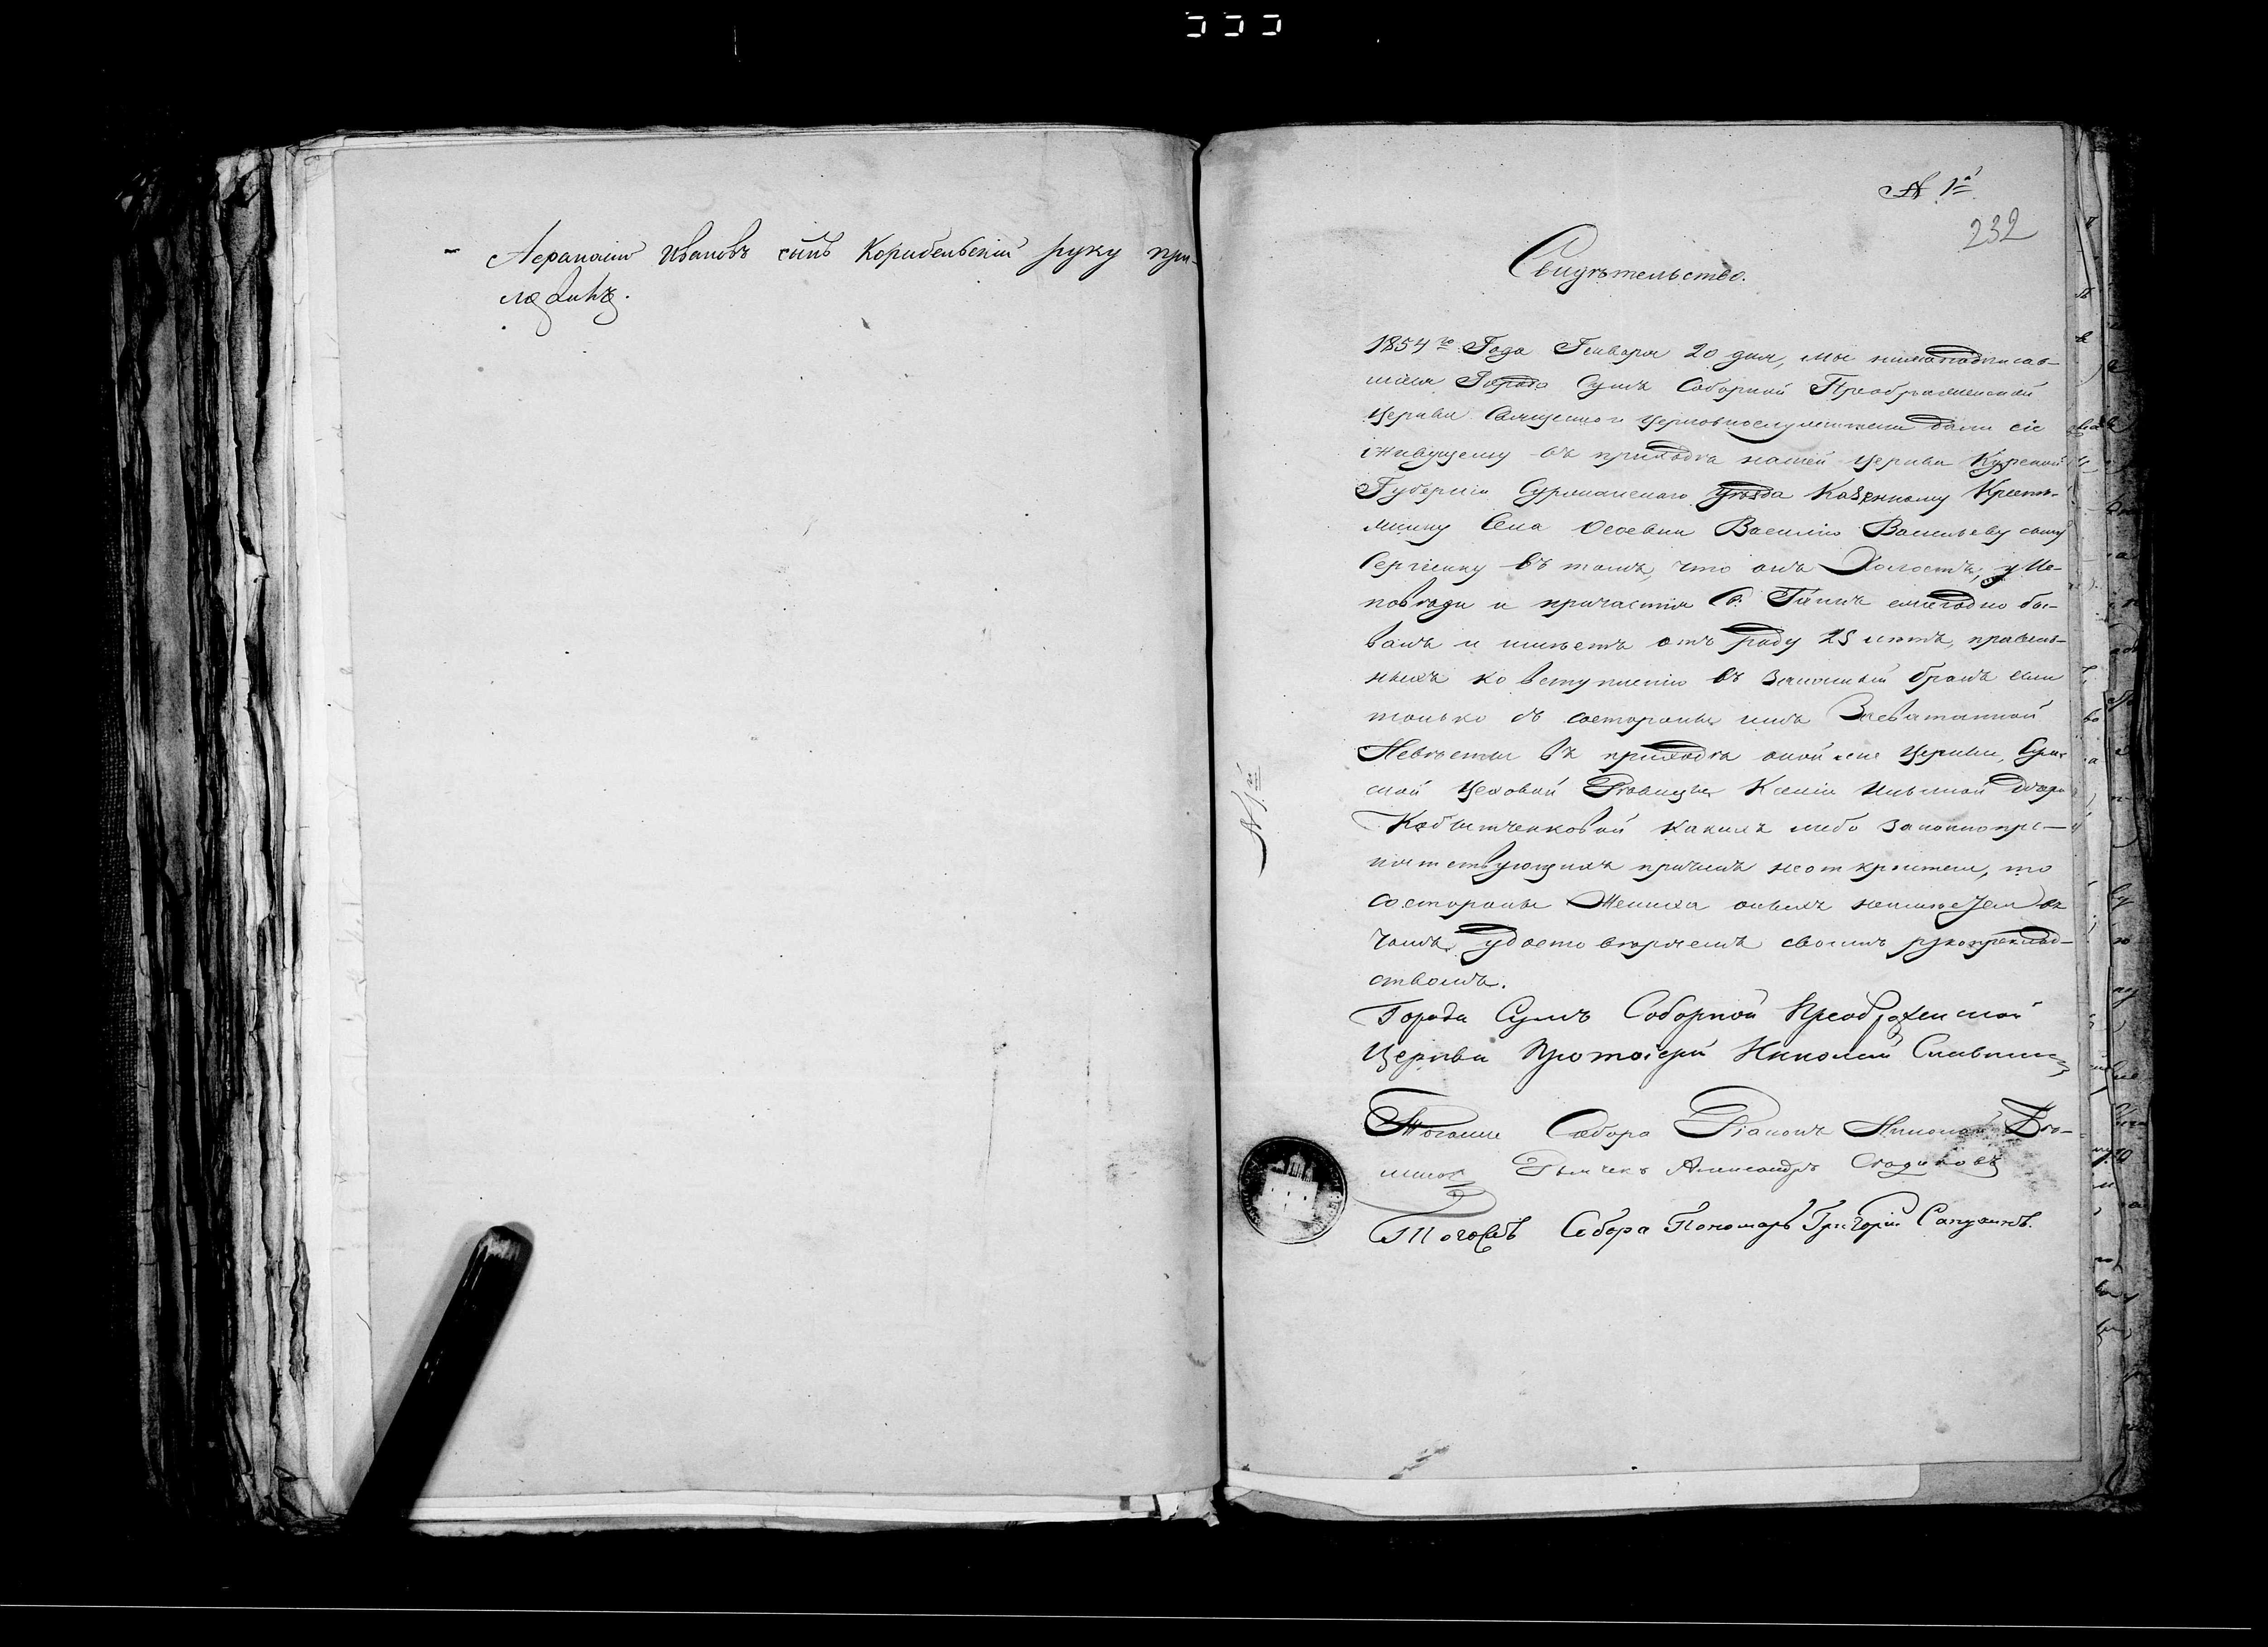 Аѳанасий Ивановъ сынъ Корабельскій руку при-
ложилъ.
№ 1й
232
Свидѣтельство.
1854го Года Генваря 20 дня, мы нижеподписав-
шіеся Города Сумъ Соборной Преображенской
Церкви Священно и Церковнослужители дали сіе
живущему въ приходѣ нашей Церкви Курской
Губерніи Суджанскаго уѣзда Казенному Кресть-
янину Села Осоевки Василію Васильеву сыну
Сергіенку въ томъ, что онъ Холостъ, у Ис-
повѣди и причастія Св. Таинъ ежегодно бы-
ваетъ и имѣетъ отъ роду 25 лѣтъ, правиль-
ныхъ ко вступленію въ законный бракъ если
только съ стороны имъ Засватанной
Невѣсты въ приходѣ оной же Церкви, Сумс
кой Цеховой Дѣвицы Ксеніи Ильиной дочери
какихъ либо законнопре-
пятствующихъ причинъ неоткроется, то
состороны Жениха оныхъ неимѣется въ
чемъ удостовѣряемъ своимъ рукоприклад-
ствомъ.
Города Сумъ Соборной Преображенской
Церкви Протоіерей Николай
Тогоже Собора Діаконъ Николай
Дьячекъ Александръ
Тогожъ Собора Пономарь Григорій
№ 1й